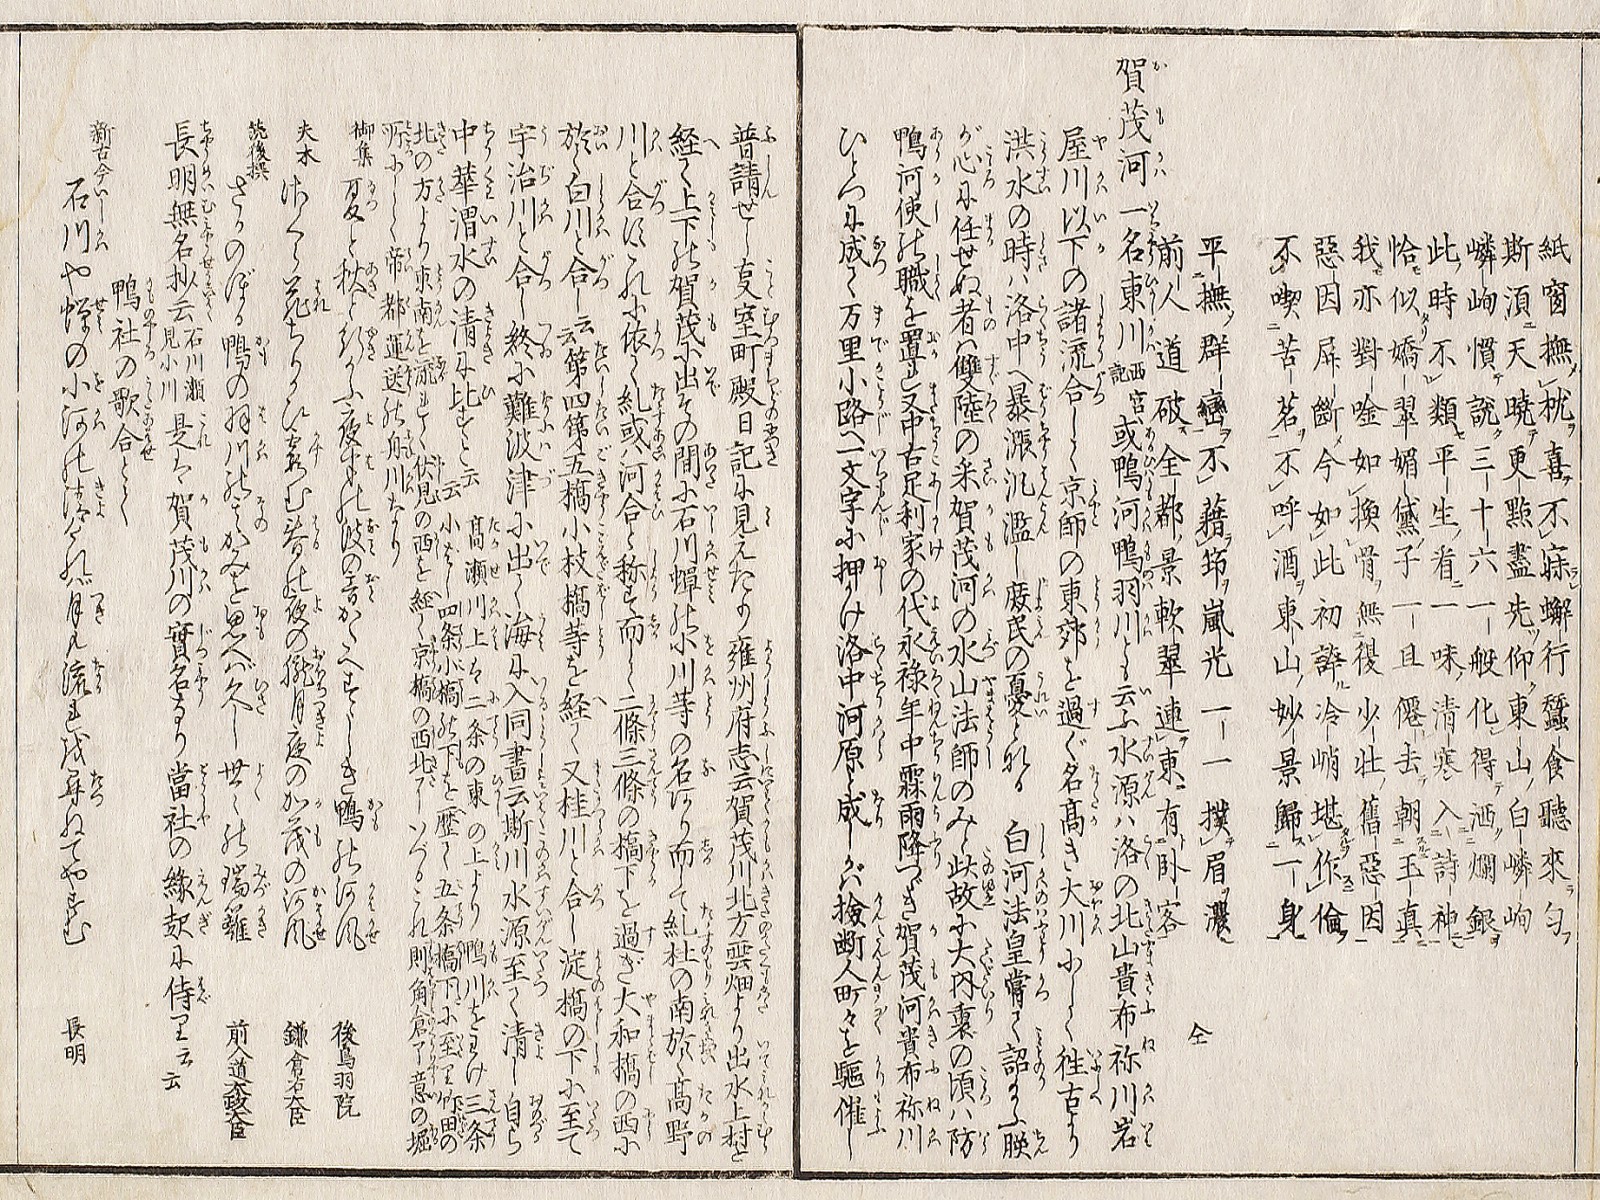 紙窗撫枕喜不寐蠏行蠶食聽來勻
斯須天曉更點盡先仰東山白嶙峋
嶙峋慣説三十六一般化得洒爛銀
此時不類平生看一味清寒入詩神
恰似嬌翠媚黛子一旦僊去朝玉真
我亦對唫如換骨無復少壮舊惡因
惡因屏斷今如此初諦冷峭堪作倫
不喫苦茗不呼酒東山妙景歸一身
仝
平撫群巒不藉筇嵐光一一撲眉濃
前人道破全都景軟翠連東有卧客
賀茂河 一名東川西宮記或鴨河鴨羽川とも云ふ水源ハ洛の北山貴布祢川岩
屋川以下の諸流合して京師の東郊を過ぐ名高き大川にして徃古より
洪水の時ハ洛中へ暴漲氾濫し庶民の憂となる 白河法皇嘗て詔まふ朕
が心に任せぬ者ハ雙陸の采賀茂河の水山法師のみと此故に大内裏の頃ハ防
鴨河使の職を置き又中古足利家の代永禄年中霖雨降つゞき賀茂河貴布祢川
ひとつに成て万里小路へ一文字に押かけ洛中河原と成しかバ撿断人町々を驅催し
普請せし支室町殿日記に見えたり 雍州府志云賀茂川北方雲畑より出水上村を
経て上下の賀茂に出その間に石川蝉の小川等の名あり而して糺杜の南於て高野
川と合ほこれに依て糺或ハ河合と称す而して二條三條の橋下を過ぎ大和橋の西に
於て白川と合し云云第四第五橋小枝橋等を経て又桂川と合し淀橋の下に至て
宇治川と合し終に難波津に出て海に入同書云斯川水源至て清し自ら
中華渭水の清に比すと云云 高瀬川上ハ二条の東の上より鴨川をわけ三条
小橋四条小橋の下を歴て五条橋下に至り竹田の
北の方より東南を流れて伏見の西を経て京橋の西北にいづるこれ則角倉了意の堀
所にして帝都運送の舟川なり
御集 夏と秋と行かふ夜半の波の音かたへすゞしき鴨の河風 後鳥羽院
夫木 春の夜の朧月夜のか茂の河風 鎌倉右大臣
続後撰 さかのぼる鴨の羽川のそのかみを思へバ久し世々の瑞籬 前入道太政大臣
長明無名抄云石川瀬見小川是は賀茂川の實名なり當社の縁起に侍りと云云
鴨社の歌合とて
新古今 石川や蝉の小河の清けれバ月も流を尋ねてやすむ 長明